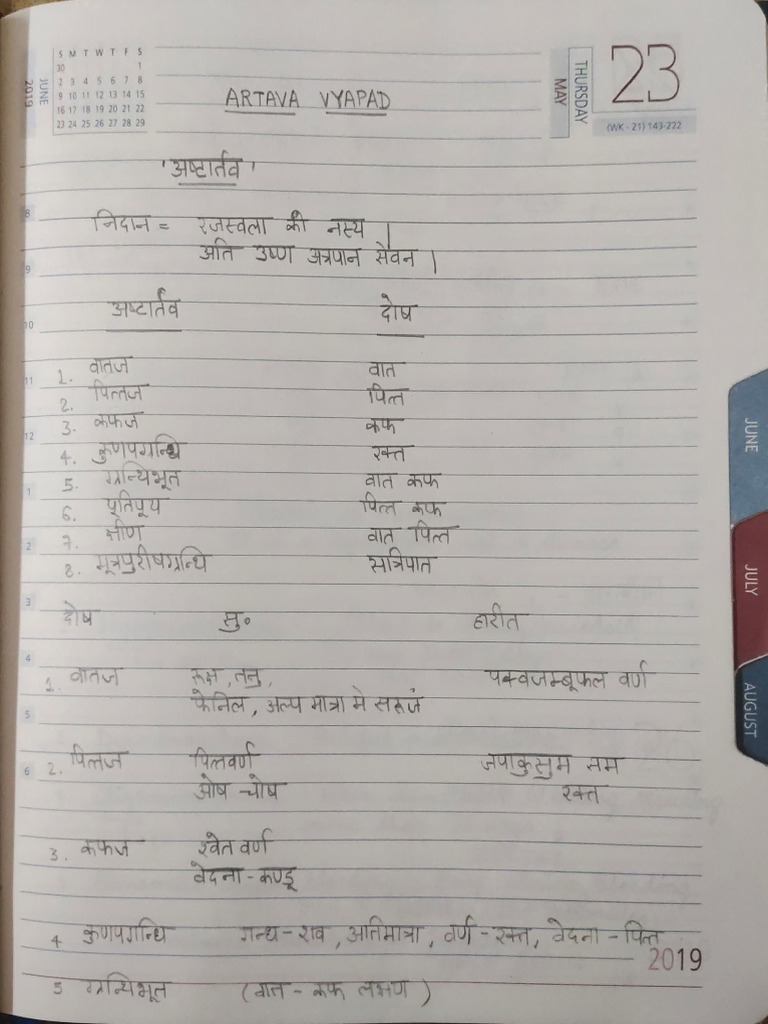 S M T W T F S
30 1
2 3 4 5 6 7 8
9 10 11 12 13 14 15
16 17 18 19 20 21 22
23 24 25 26 27 28 29
JUNE
2019
ARTAVA VYAPAD
MAY
THURSDAY
23
(WK - 21) 143-222
'अष्टार्तव'
8
निदान = रजस्वला की नस्य |
अति उष्ण अन्नपान सेवन |
9
अष्टार्तव दोष
10
11
1. वातज वात
2. पित्तज पित्त
3. कफज कफ
12
4. कुणपग्रन्थि रक्त
5. ग्रन्थिभूत वात कफ
1
6. पूतिपूय पित्त कफ
7. क्षीण वात पित्त
2
8. मूत्रपुरीषग्रन्थि सन्निपात
3
दोष सु० हारीत
4
1. वातज रूक्ष, तनु, पक्वजम्बूफल वर्ण
फेनिल, अल्प मात्रा मे सरुजं
5
2. पित्तज पित्तवर्ण जपाकुसुम सम
6
ओष - चोष रक्त
3. कफज श्वेत वर्ण
वेदना - कण्डू
4 कुणपग्रन्थि गन्ध - शव, अतिमात्रा, वर्ण - रक्त, वेदना - पित्त
2019
5 ग्रन्थिभूत (वात - कफ लक्षण)
JUNE
JULY
AUGUST